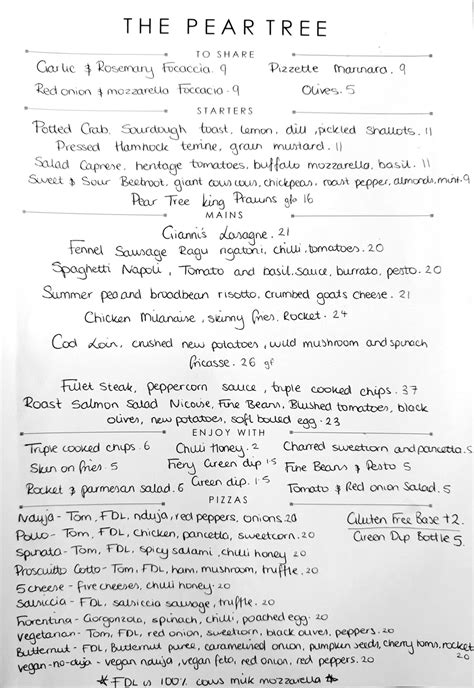 THE PEAR TREE
TO SHARE
Garlic & Rosemary Focaccia. 9
Pizzette Marinara. 9
Red onion & mozzarella Foccacia. 9
Olives. 5
STARTERS
Potted Crab, Sourdough toast, lemon, dill, pickled shallots. 11
Pressed Hamhock terrine, grain mustard. 11
Salad Caprese, heritage tomatoes, buffalo mozzarella, basil. 11
Sweet & Sour Beetroot, giant couscous, chickpeas, roast pepper, almonds, mint. 9
Pear Tree king Prawns gfo 16
MAINS
Gianni's Lasagne. 21
Fennel Sausage Ragu rigatoni, chilli, tomatoes. 20
Spaghetti Napoli, Tomato and basil sauce, burrata, pesto. 20
Summer pea and broadbean risotto, crumbed goats cheese. 21
Chicken Milanaise, skinny fries, Rocket. 24
Cod Loin, crushed new potatoes, wild mushroom and spinach
fricasse. 26 gf
Fillet Steak, peppercorn sauce, triple cooked chips. 37
Roast Salmon Salad Nicouse, Fine Beans, Blushed tomatoes, black
olives, new potatoes, soft boiled egg. 23
ENJOY WITH
Triple cooked chips. 6
Chilli Honey. 2
Charred sweetcorn and pancetta. 5
Skin on fries. 5
Fiery Green dip 1.5
Fine Beans & Pesto 5
Rocket & parmesan salad. 6
Green dip. 1.5
Tomato & Red onion Salad. 5
PIZZAS
Nduja - Tom, FDL, nduja, red peppers, onions. 20
Gluten Free Base +2
Pollo - Tom, FDL, chicken, pancetta, sweetcorn. 20
Green Dip Bottle 5.
Spinata - Tom, FDL, spicy salami, chilli honey 20
Proscuitto Cotto - Tom, FDL, ham, mushroom, truffle. 20
5 cheese - five cheeses, chilli honey. 20
Salsiccia - FDL, salsiccia sausage, truffle. 20
Fiorentina - Gorgonzola, spinach, chilli, poached egg. 20
Vegetarian - Tom, FDL, red onion, sweetcorn, black olives, peppers. 20
Butternut - FDL, Butternut puree, caramelined onion, pumpkin seeds, cherry toms, rocket 20
Vegan-no-duja - vegan nduja, vegan feta, red onion, red peppers. 20
* FDL is 100% cows milk mozzarella *